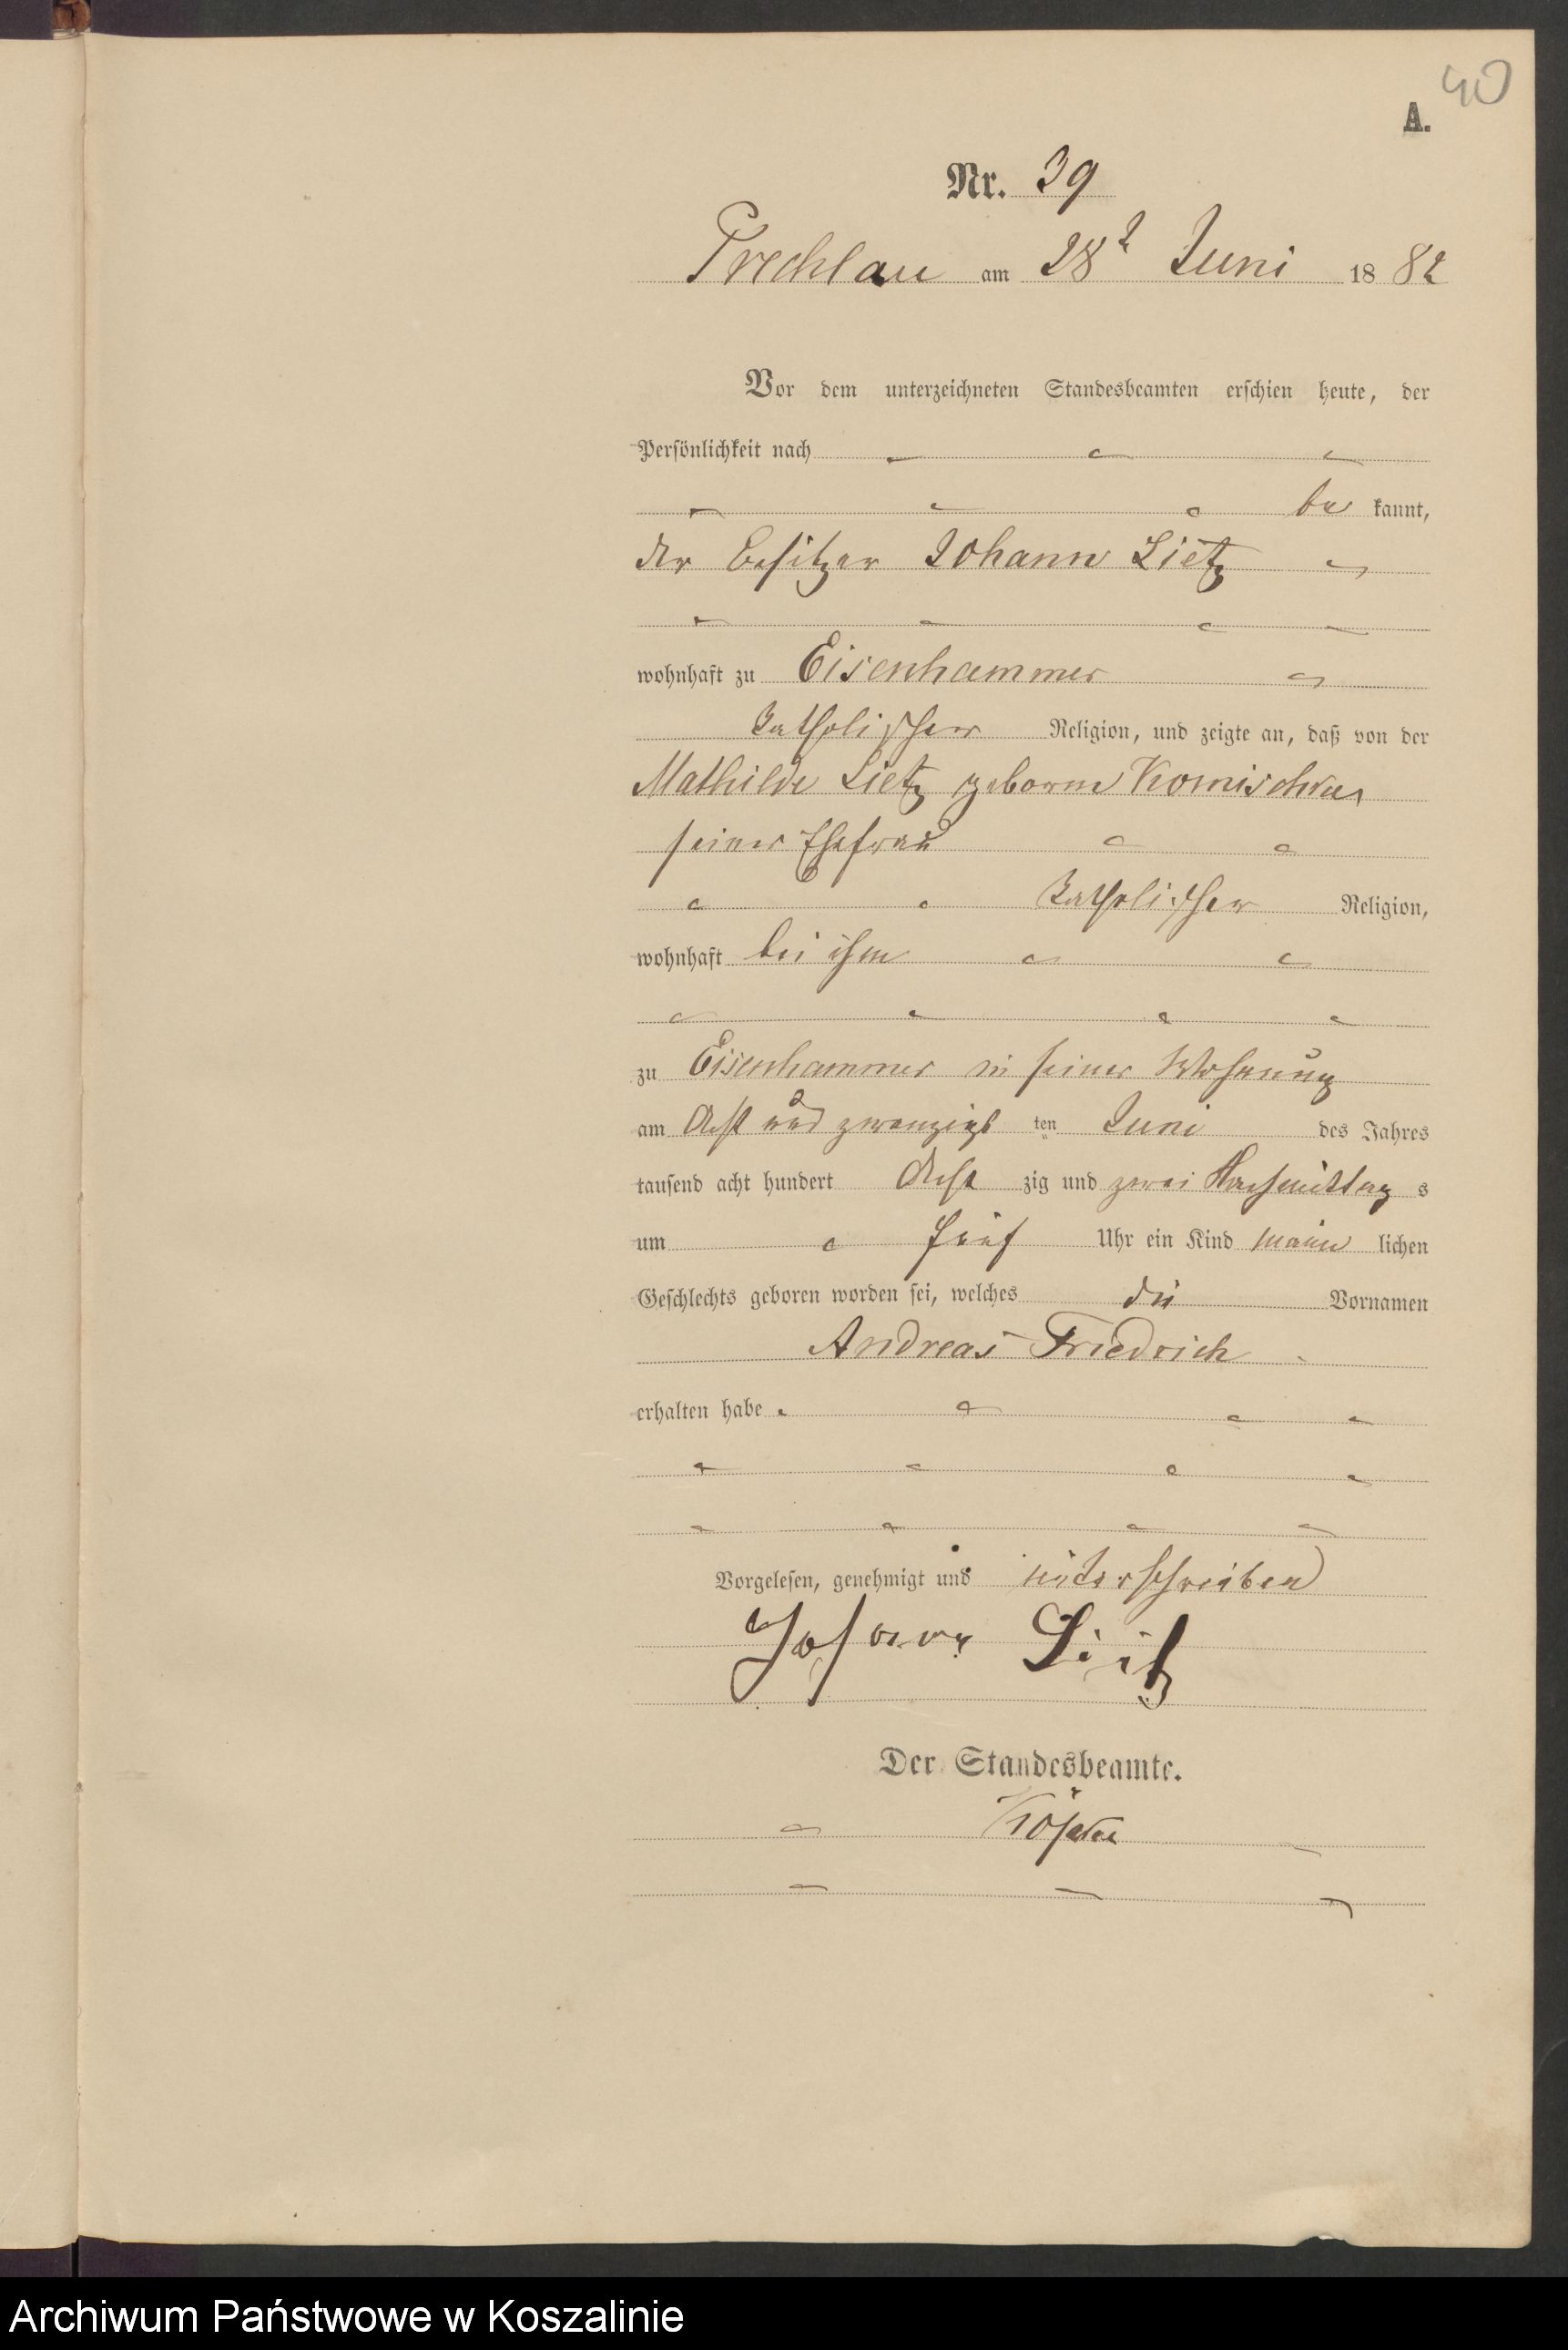 40
A.
Nr. 39
Prechlau am 28t Juni 1882
Vor dem unterzeichneten Standesbeamten erschien heute, der
Persönlichkeit nach
be kannt,
der Besitzer Johann Lietz
wohnhaft zu Eisenhammer
katholischer Religion, und zeigte an, daß von der
Mathilde Lietz geborne
seiner Ehefrau
katholischer Religion,
wohnhaft bei ihm
zu Eisenhammer in seiner Wohnung
am Acht und zwanzigs ten Juni des Jahres
tausend acht hundert Acht zig und zwei Nachmittag s
um fünf Uhr ein Kind männ lichen
Geschlechts geboren worden sei, welches die Vornamen
Andreas Friedrich
erhalten habe
Vorgelesen, genehmigt und unterschrieben
Johann Lietz
Der Standesbeamte.
Archiwum Państwowe w Koszalinie